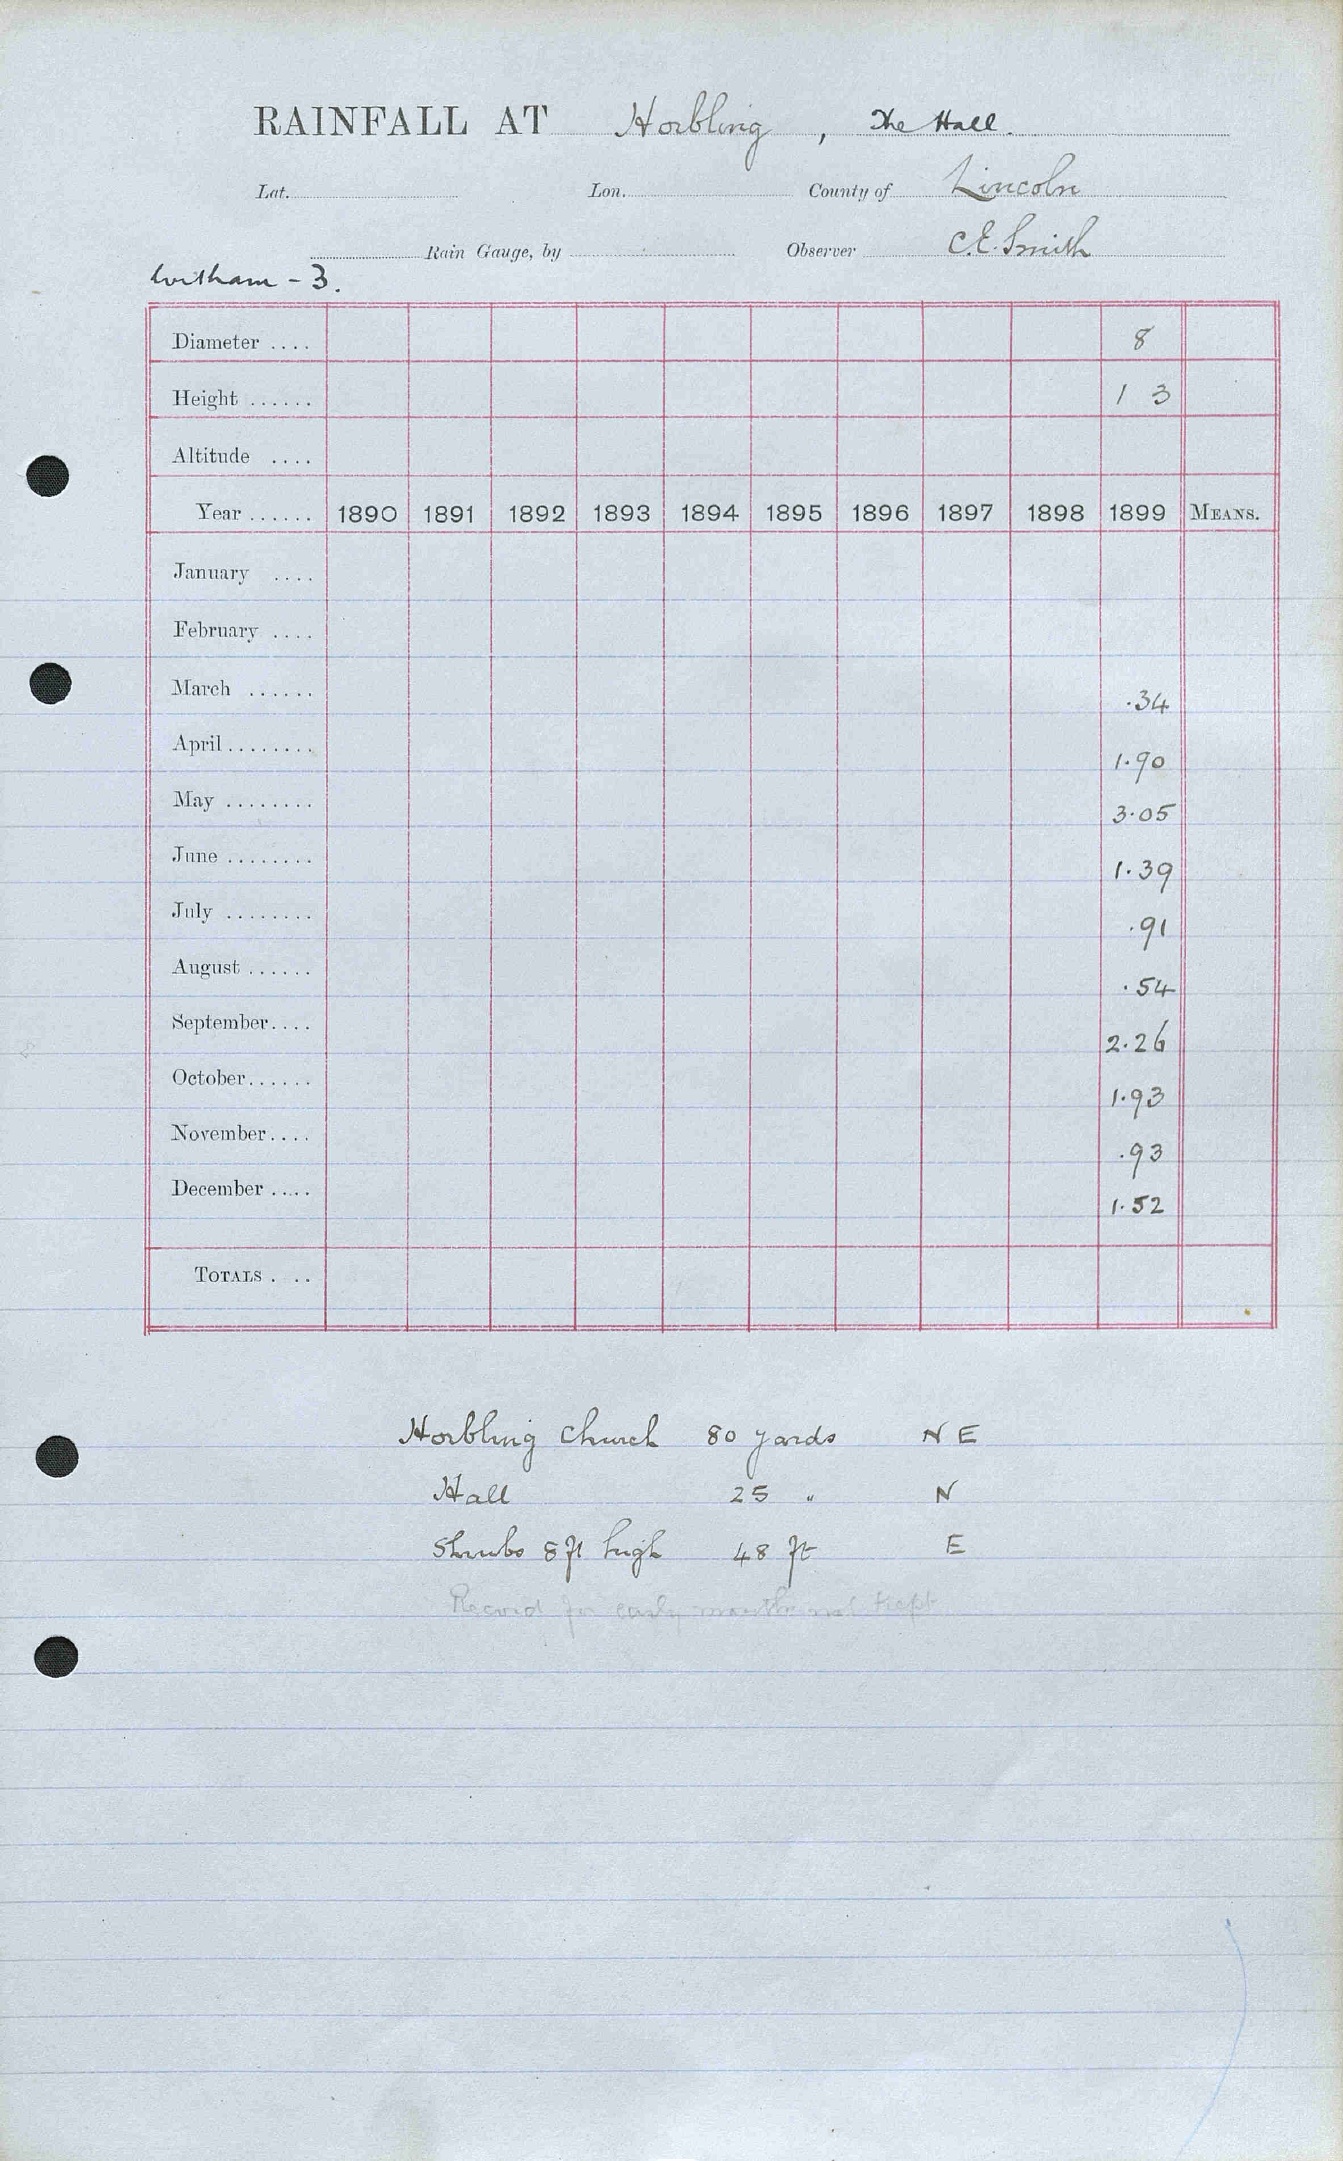 RAINFALL AT Horbling, The Hall.
Lat. Lon. County of Lincoln
Rain Gauge, by Observer C.E. Smith
Witham - 3.
Diameter .... 8
Height ...... 1 3
Altitude ....
Year ...... 1890 1891 1892 1893 1894 1895 1896 1897 1898 1899 MEANS.
January ....
February ....
March ...... .34
April ........ 1.90
May ........ 3.05
June ........ 1.39
July ........ .91
August ...... .54
September.... 2.26
October...... 1.93
November.... .93
December ..... 1.52
TOTALS . ..
Horbling Church 80 yards N E
Hall 25 " N
Shrubs 8 ft high 48 ft E
Record for early months not kept